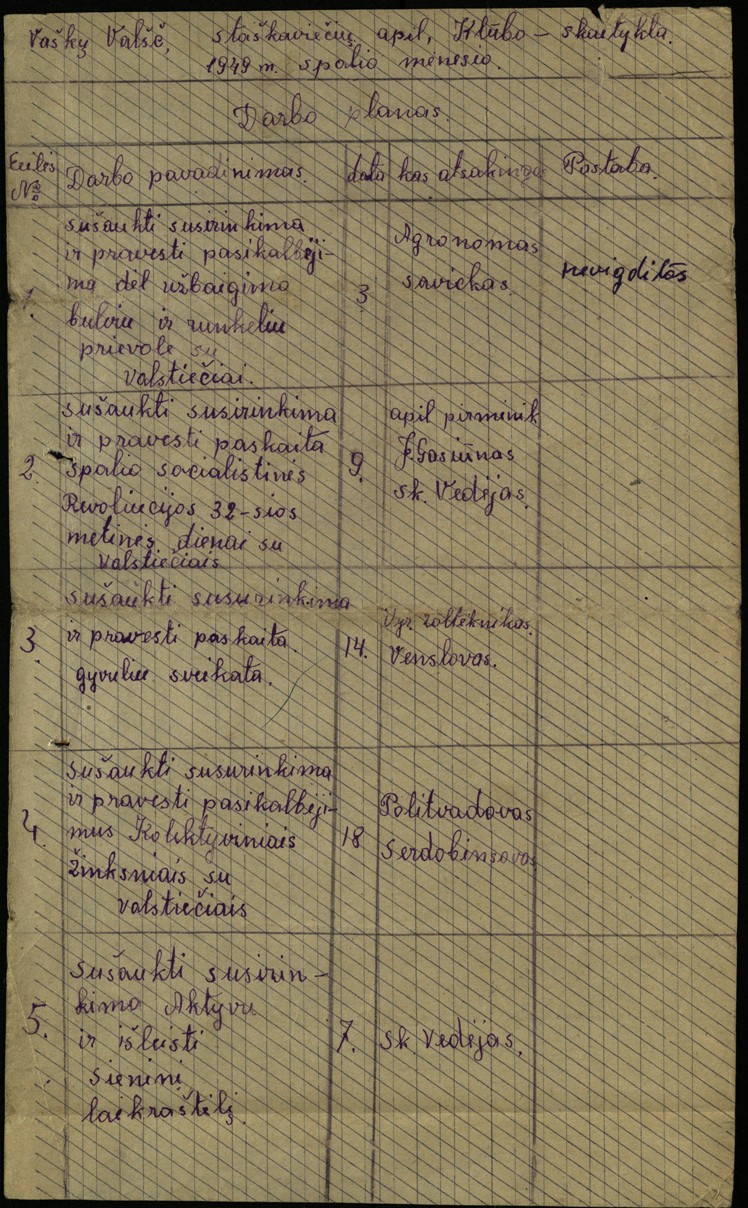 Vaškų Valsč, staškavičių apil, Klūbo – skaitykla.
1949 m. spalio mėnesio.
Darbo planas.
Eilės № Darbo pavadinimas. data kas atsakingas Pastaba.
sušaukti susirinkima
ir pravesti pasikalbėji-
ma dėl užbaigimo
bulviu ir runkeliu
prievole su
valstiečiai.
1. 3 Agronomas
savickas.
nevigditas
sušaukti susirinkima
ir pravesti paskaita
spalio socialistinės
Revoliucijos 32-sios
metinės dienai su
valstiečiais
2. 9. apil pirminik
J. Gasiūnas
sk. Vedėjas.
sušaukti susurinkima
ir pravesti paskaita.
gyvuliu sveikata.
3. 14. Vyr. zolteknikas.
Venslovas.
sušaukti susurinkima
ir pravesti pasikalbėji-
mus Kolektyviniais
žinksniais su
valstiečiais
4. 18 Politvadovas
Serdobinsovas
sušaukti susirin-
kimo Aktyvu
ir išleisti
sieninį
laikraštėlį.
5. 7. sk. Vedėjas.